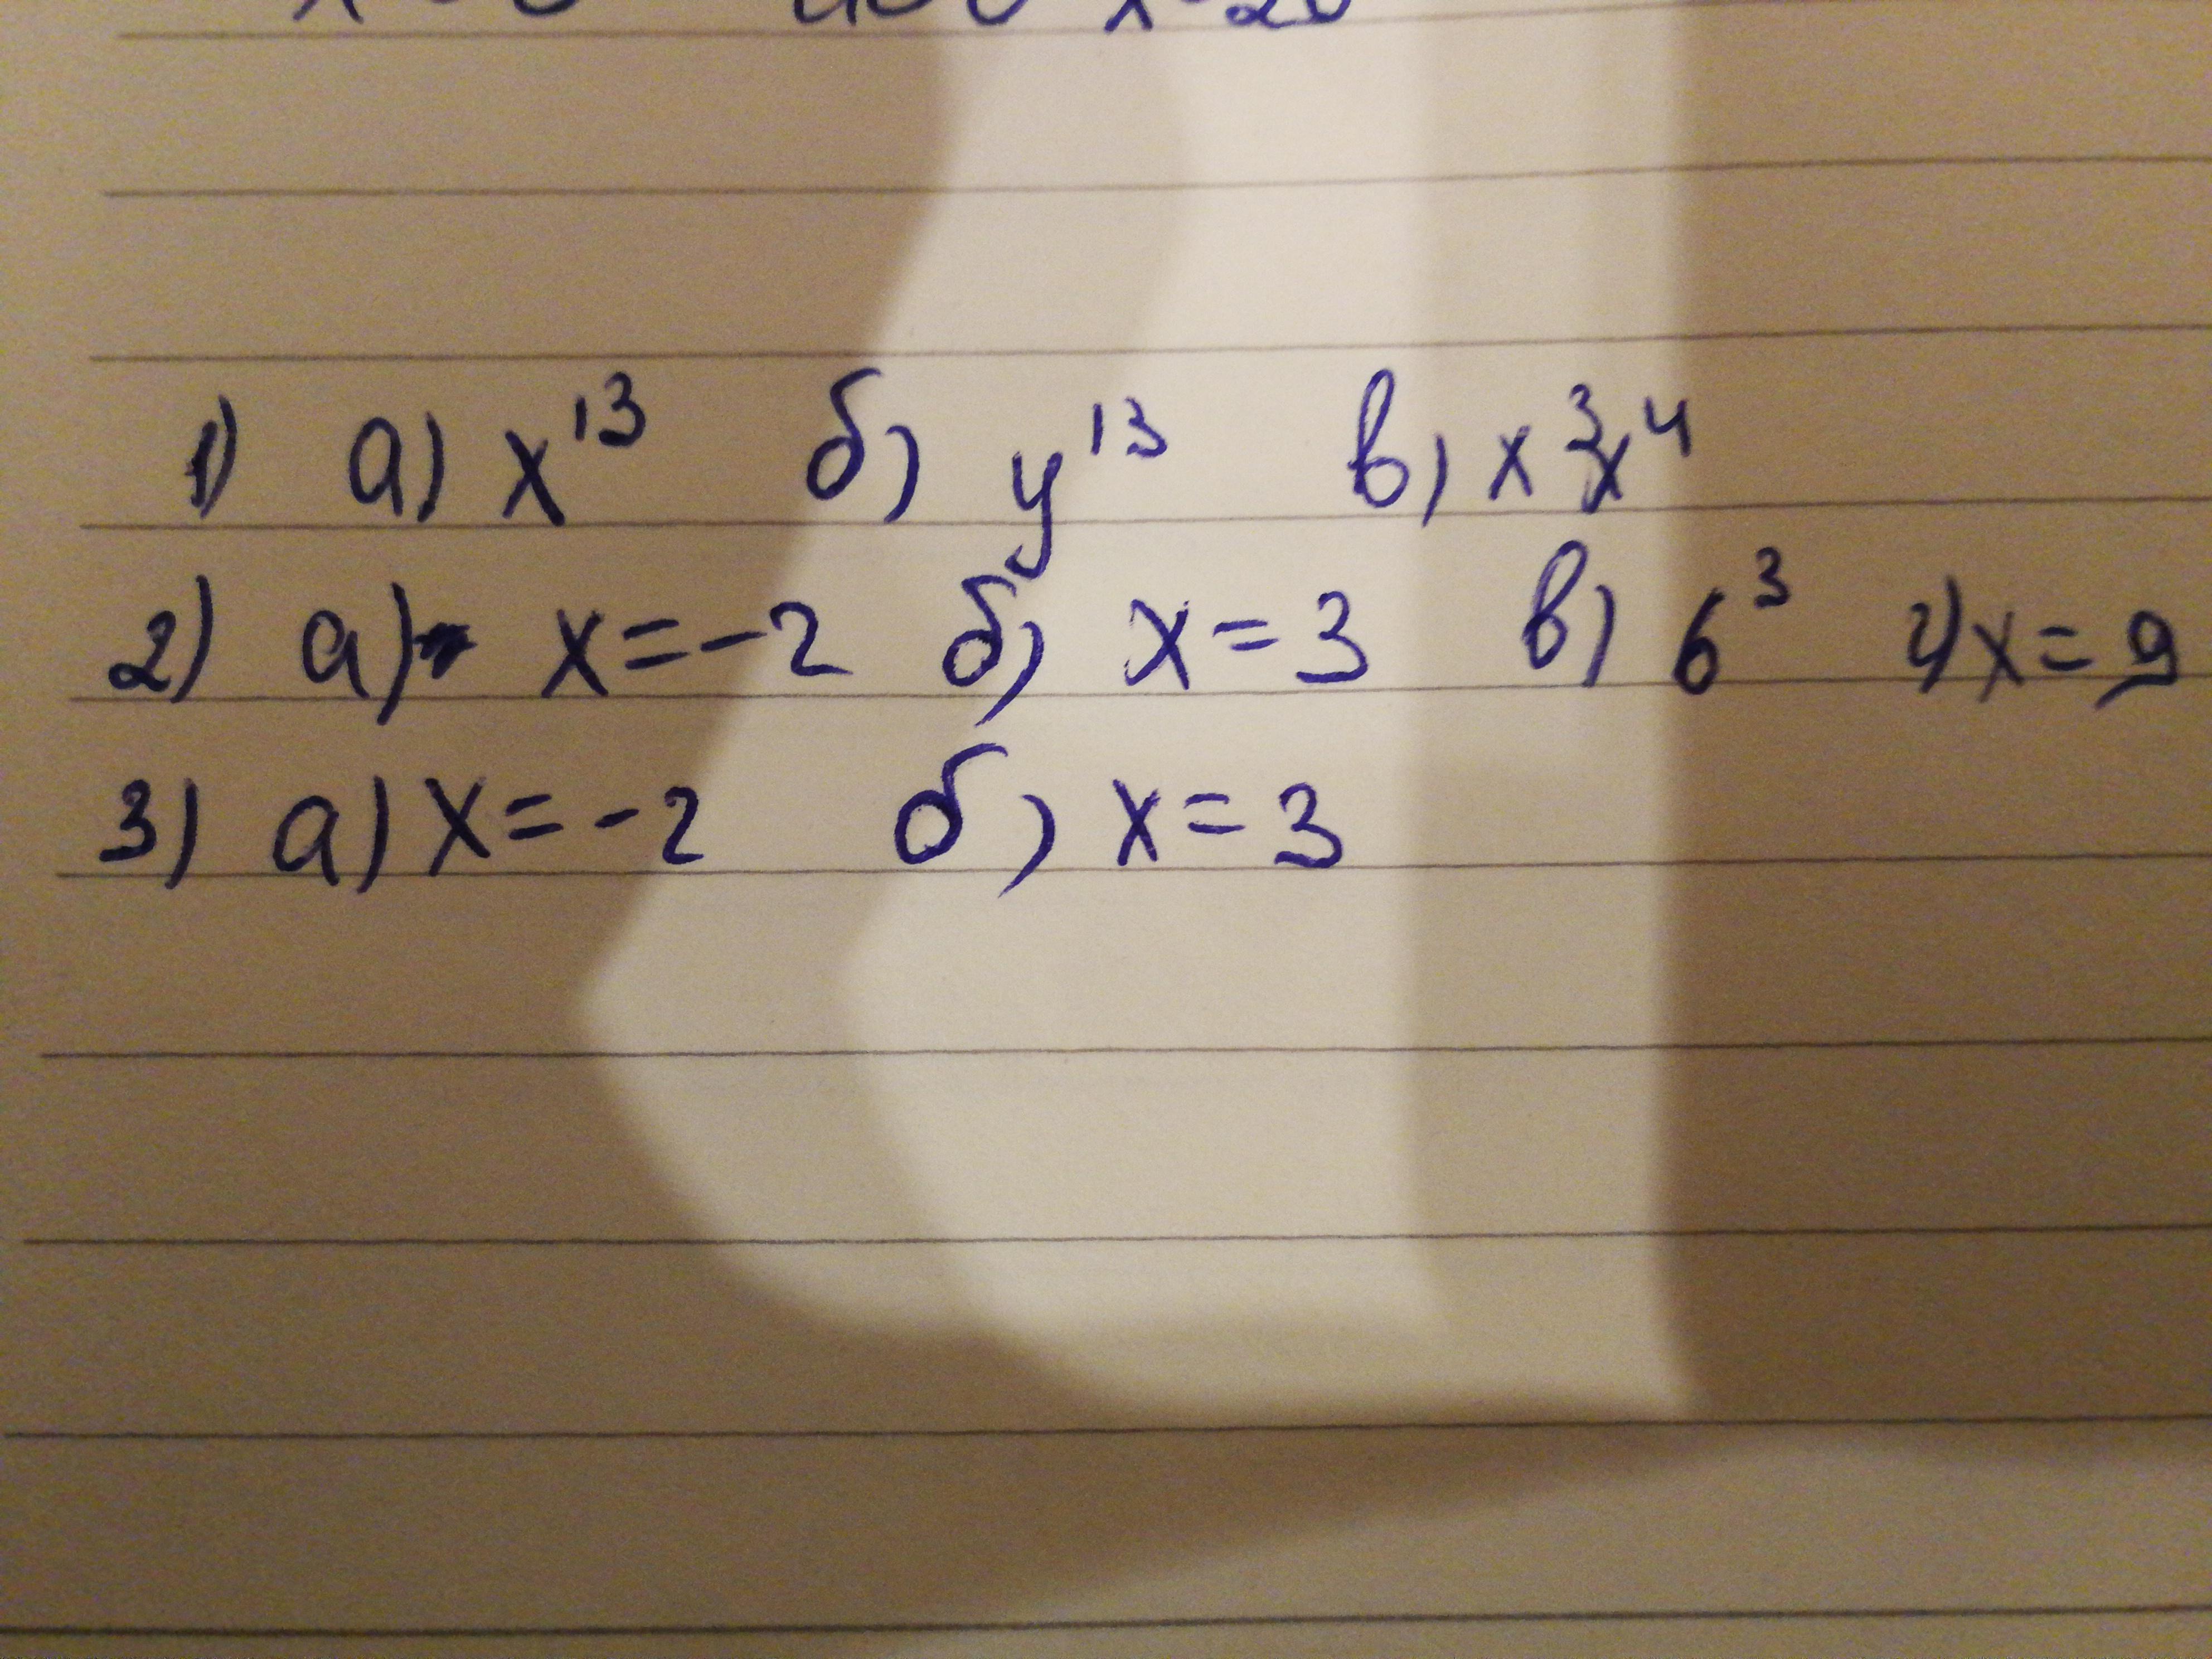 1) а) x¹³ б) y¹³ в) x³x⁴
2) а) x=-2 б) x=3 в) 6³ г) x=9
3) а) x=-2 б) x=3